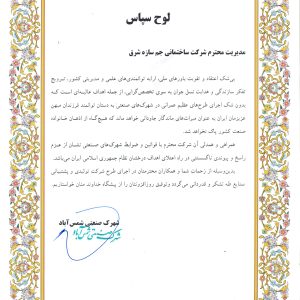 لوح سپاس
مدیریت محترم شرکت ساختمانی جم سازه شرق
بی‌شک اعتقاد و تقویت باورهای ملی، ارایه توانمندی‌های علمی و مدیریتی کشور، ترویج
تفکر سازندگی و هدایت نسل جوان به سوی تخصص‌گرایی، از جمله اهداف عالیه‌ای است که
بدون شک اجرای طرح‌های عظیم عمرانی در شهرک‌های صنعتی به دستان توانمند فرزندان میهن
عزیزمان ایران به عنوان میراث‌های ماندگار جاودانی خواهد ماند که هیچ‌گاه از اذهان خانواده
صنعت کشور پاک نخواهد شد.
همراهی و همدلی آن شرکت محترم با قوانین و ضوابط شهرک‌های صنعتی نشان از عزم
راسخ و پیوندی ناگسستنی در راه اعتلای اهداف درخشان نظام جمهوری اسلامی ایران می‌باشد.
بدین‌وسیله از زحمات شما و همکاران محترمتان در اجرای طرح شرکت تولیدی و پشتیبانی
صنایع طه تشکر و قدردانی می‌گردد و توفیق روزافزونتان را از پیشگاه خداوند منان خواستاریم.
شهرک صنعتی شمس آباد
شهرک صنعتی شمس آباد